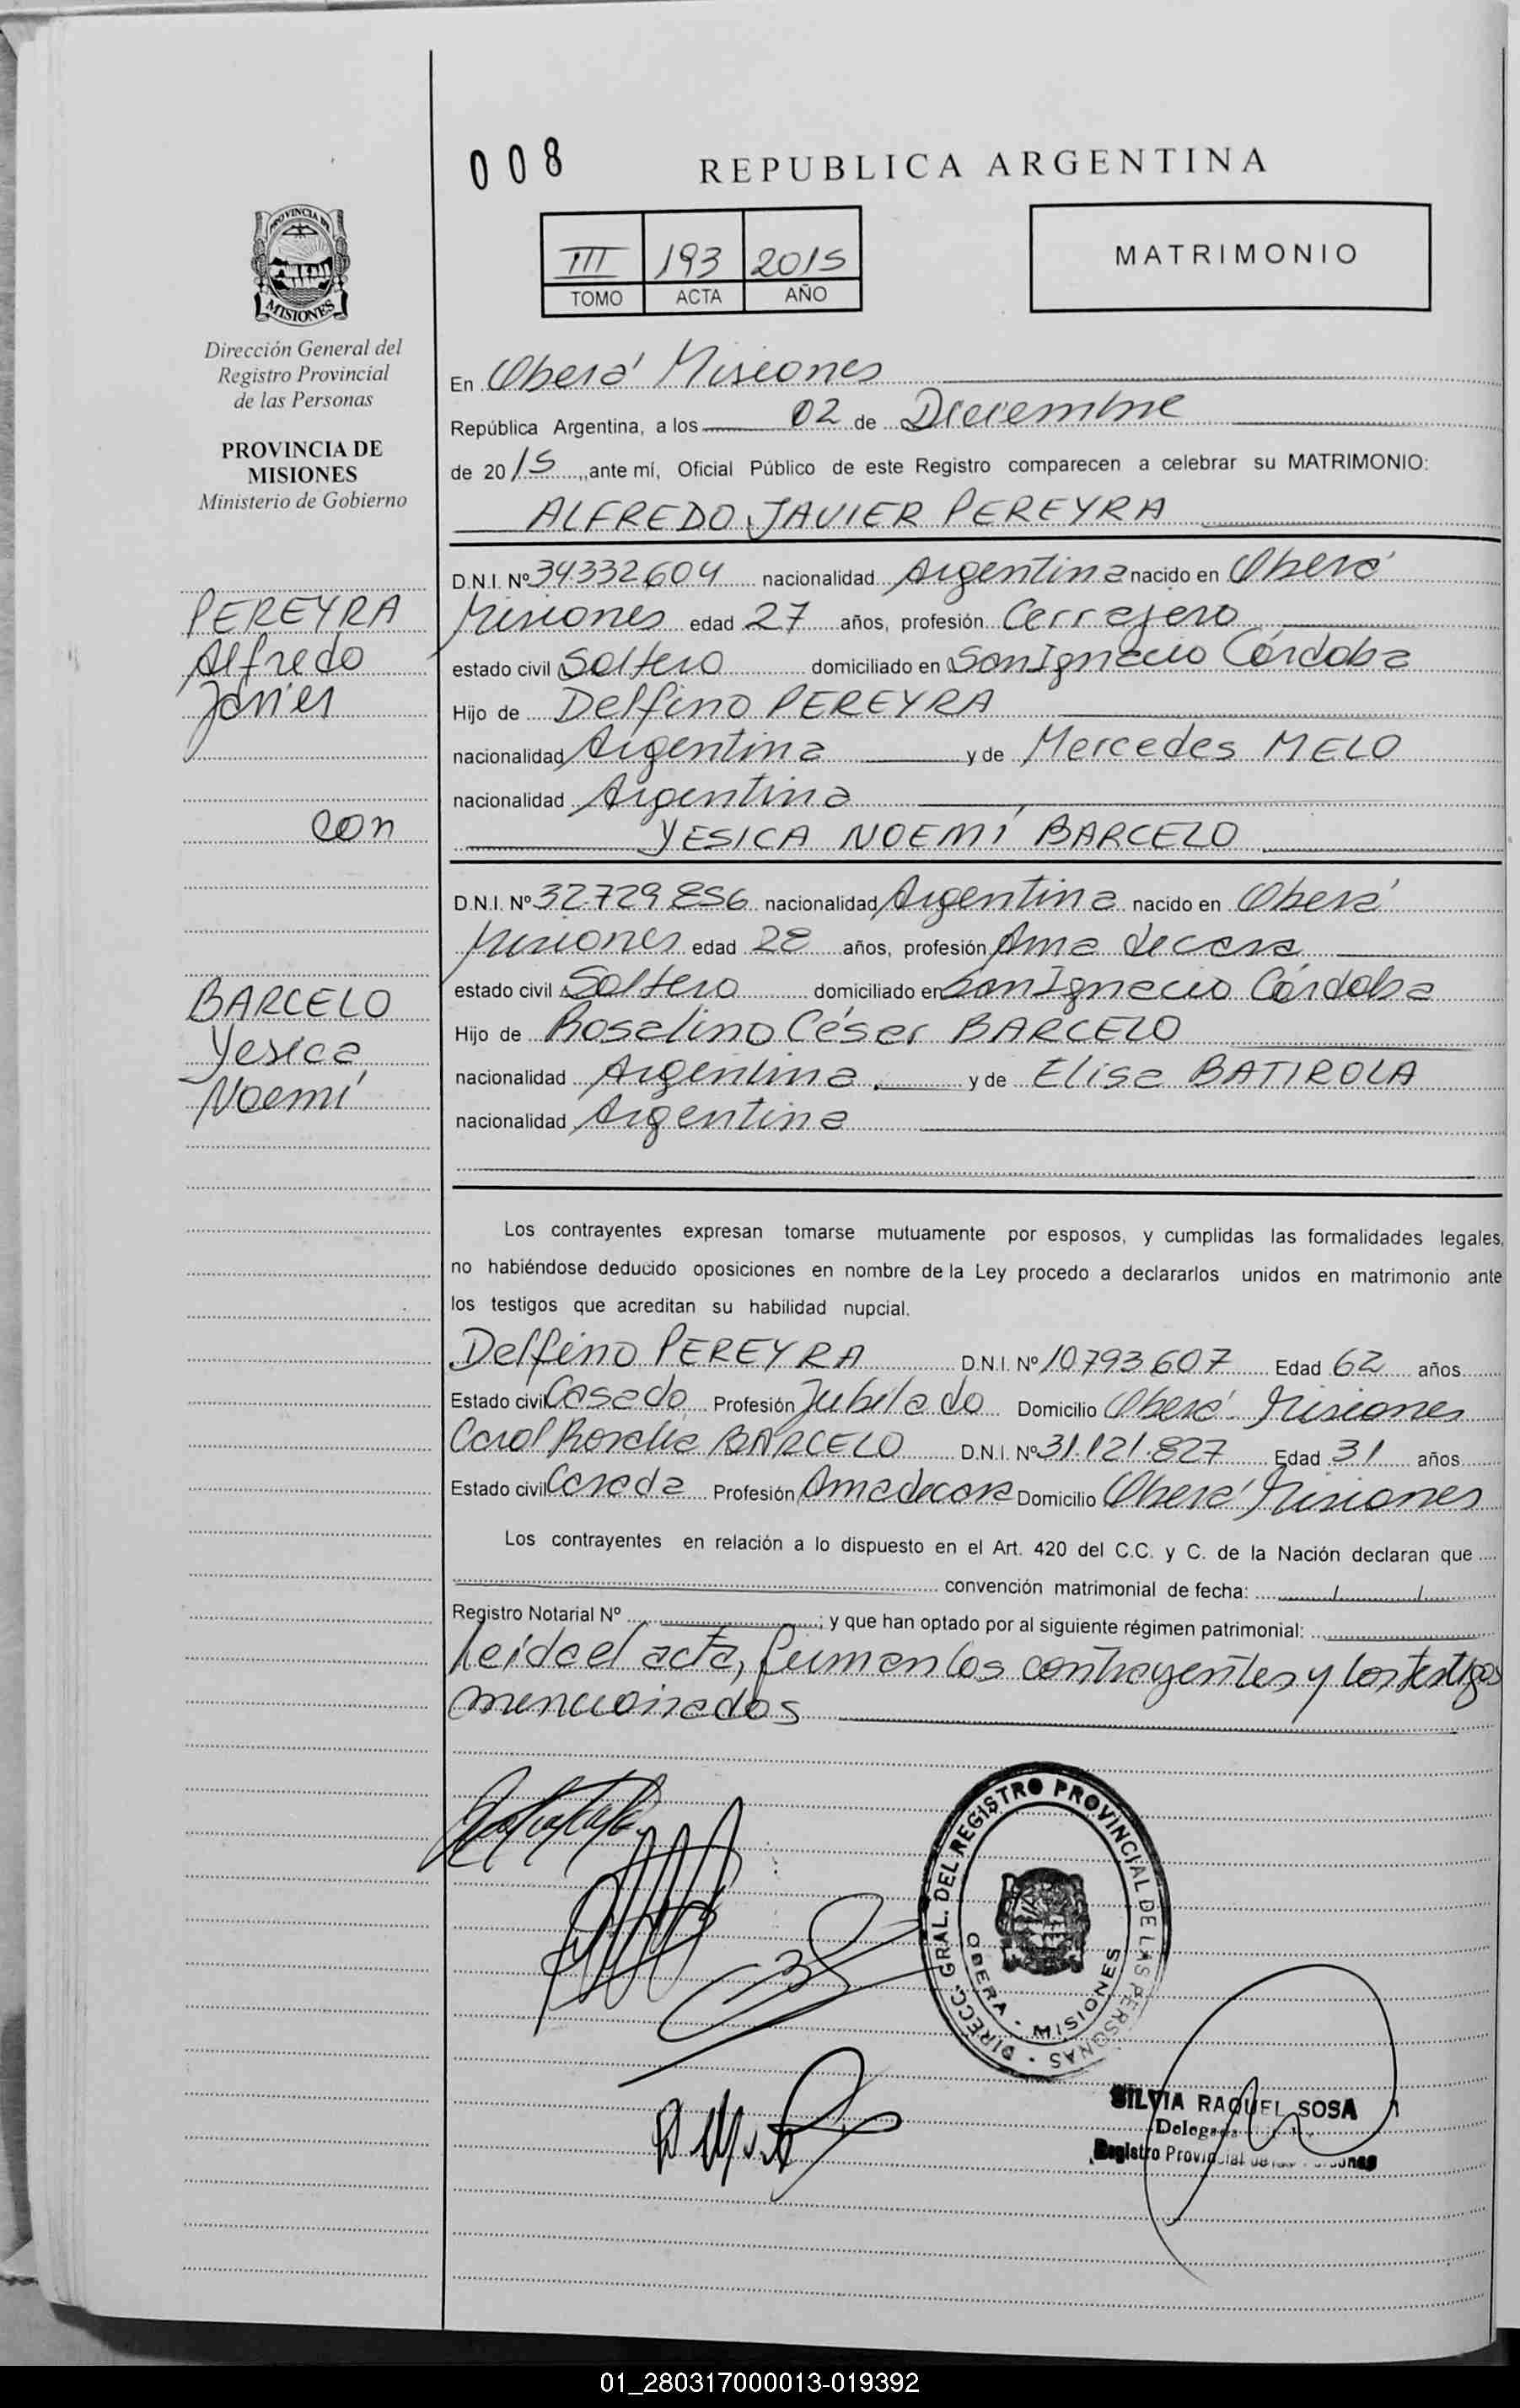 008
REPUBLICA ARGENTINA
PROVINCIA DE
MISIONES
III 193 2015
TOMO ACTA AÑO
MATRIMONIO
Dirección General del
Registro Provincial
de las Personas
PROVINCIA DE
MISIONES
Ministerio de Gobierno
En Oberá Misiones
República Argentina, a los 02 de Diciembre
de 2015, ante mí, Oficial Público de este Registro comparecen a celebrar su MATRIMONIO:
ALFREDO JAVIER PEREYRA
PEREYRA
Alfredo
Javier
con
BARCELO
Yesica
Noemí
D.N.I. Nº 34332604 nacionalidad Argentina nacido en Oberá
Misiones edad 27 años, profesión Cerrajero
estado civil Soltero domiciliado en San Ignacio Córdoba
Hijo de Delfino PEREYRA
nacionalidad Argentina y de Mercedes MELO
nacionalidad Argentina
YESICA NOEMÍ BARCELO
D.N.I. Nº 32.729.856 nacionalidad Argentina nacido en Oberá
Misiones edad 28 años, profesión Ama de casa
estado civil Soltero domiciliado en San Ignacio Córdoba
Hijo de Rosalino César BARCELO
nacionalidad Argentina y de Elisa BATIROLA
nacionalidad Argentina
Los contrayentes expresan tomarse mutuamente por esposos, y cumplidas las formalidades legales,
no habiéndose deducido oposiciones en nombre de la Ley procedo a declararlos unidos en matrimonio ante
los testigos que acreditan su habilidad nupcial.
Delfino PEREYRA D.N.I. Nº 10793607 Edad 62 años
Estado civil Casado Profesión Jubilado Domicilio Oberá Misiones
Carol Rosalia BARCELO D.N.I. Nº 31.121.827 Edad 31 años
Estado civil Casada Profesión Ama de casa Domicilio Oberá Misiones
Los contrayentes en relación a lo dispuesto en el Art. 420 del C.C. y C. de la Nación declaran que
convención matrimonial de fecha: / /
Registro Notarial Nº ; y que han optado por al siguiente régimen patrimonial:
Leida el acta, firman los contrayentes y los testigos
mencionados
DIRECC. GRAL. DEL REGISTRO PROVINCIAL DE LAS PERSONAS
OBERA - MISIONES
SILVIA RAQUEL SOSA
Delegada
Registro Provincial
01_280317000013-019392